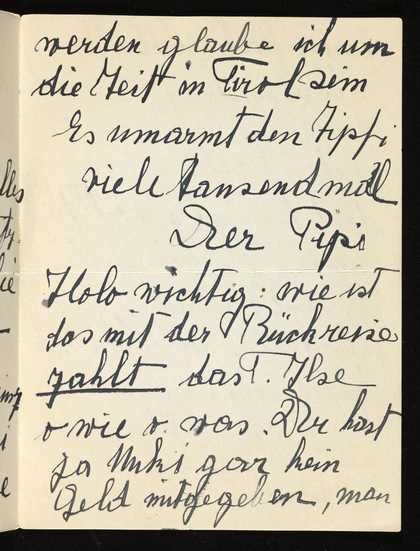 werden glaube ich um
die Zeit in Tirol sein
Es umarmt den Zipfi
viele tausendmal
Der Pipi
Holo wichtig: wie ist
das mit der Rückreise
zahlt das T. Ilse
o wie o. was. Du hast
ja Muki gar kein
Geld mitgegeben, man